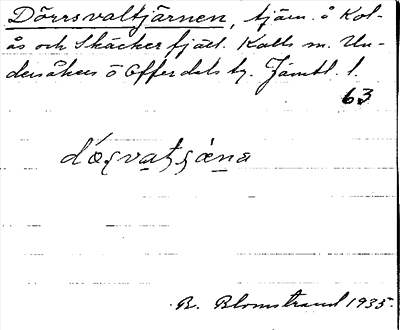 Dörrsvaltjärnen, tjärn. å Kol-
ås och Skäckerfjäll. Kalls sn. Un-
dersåkers o Offerdals tg. Jämtl. l.
63
B. Blomstrand 1935.